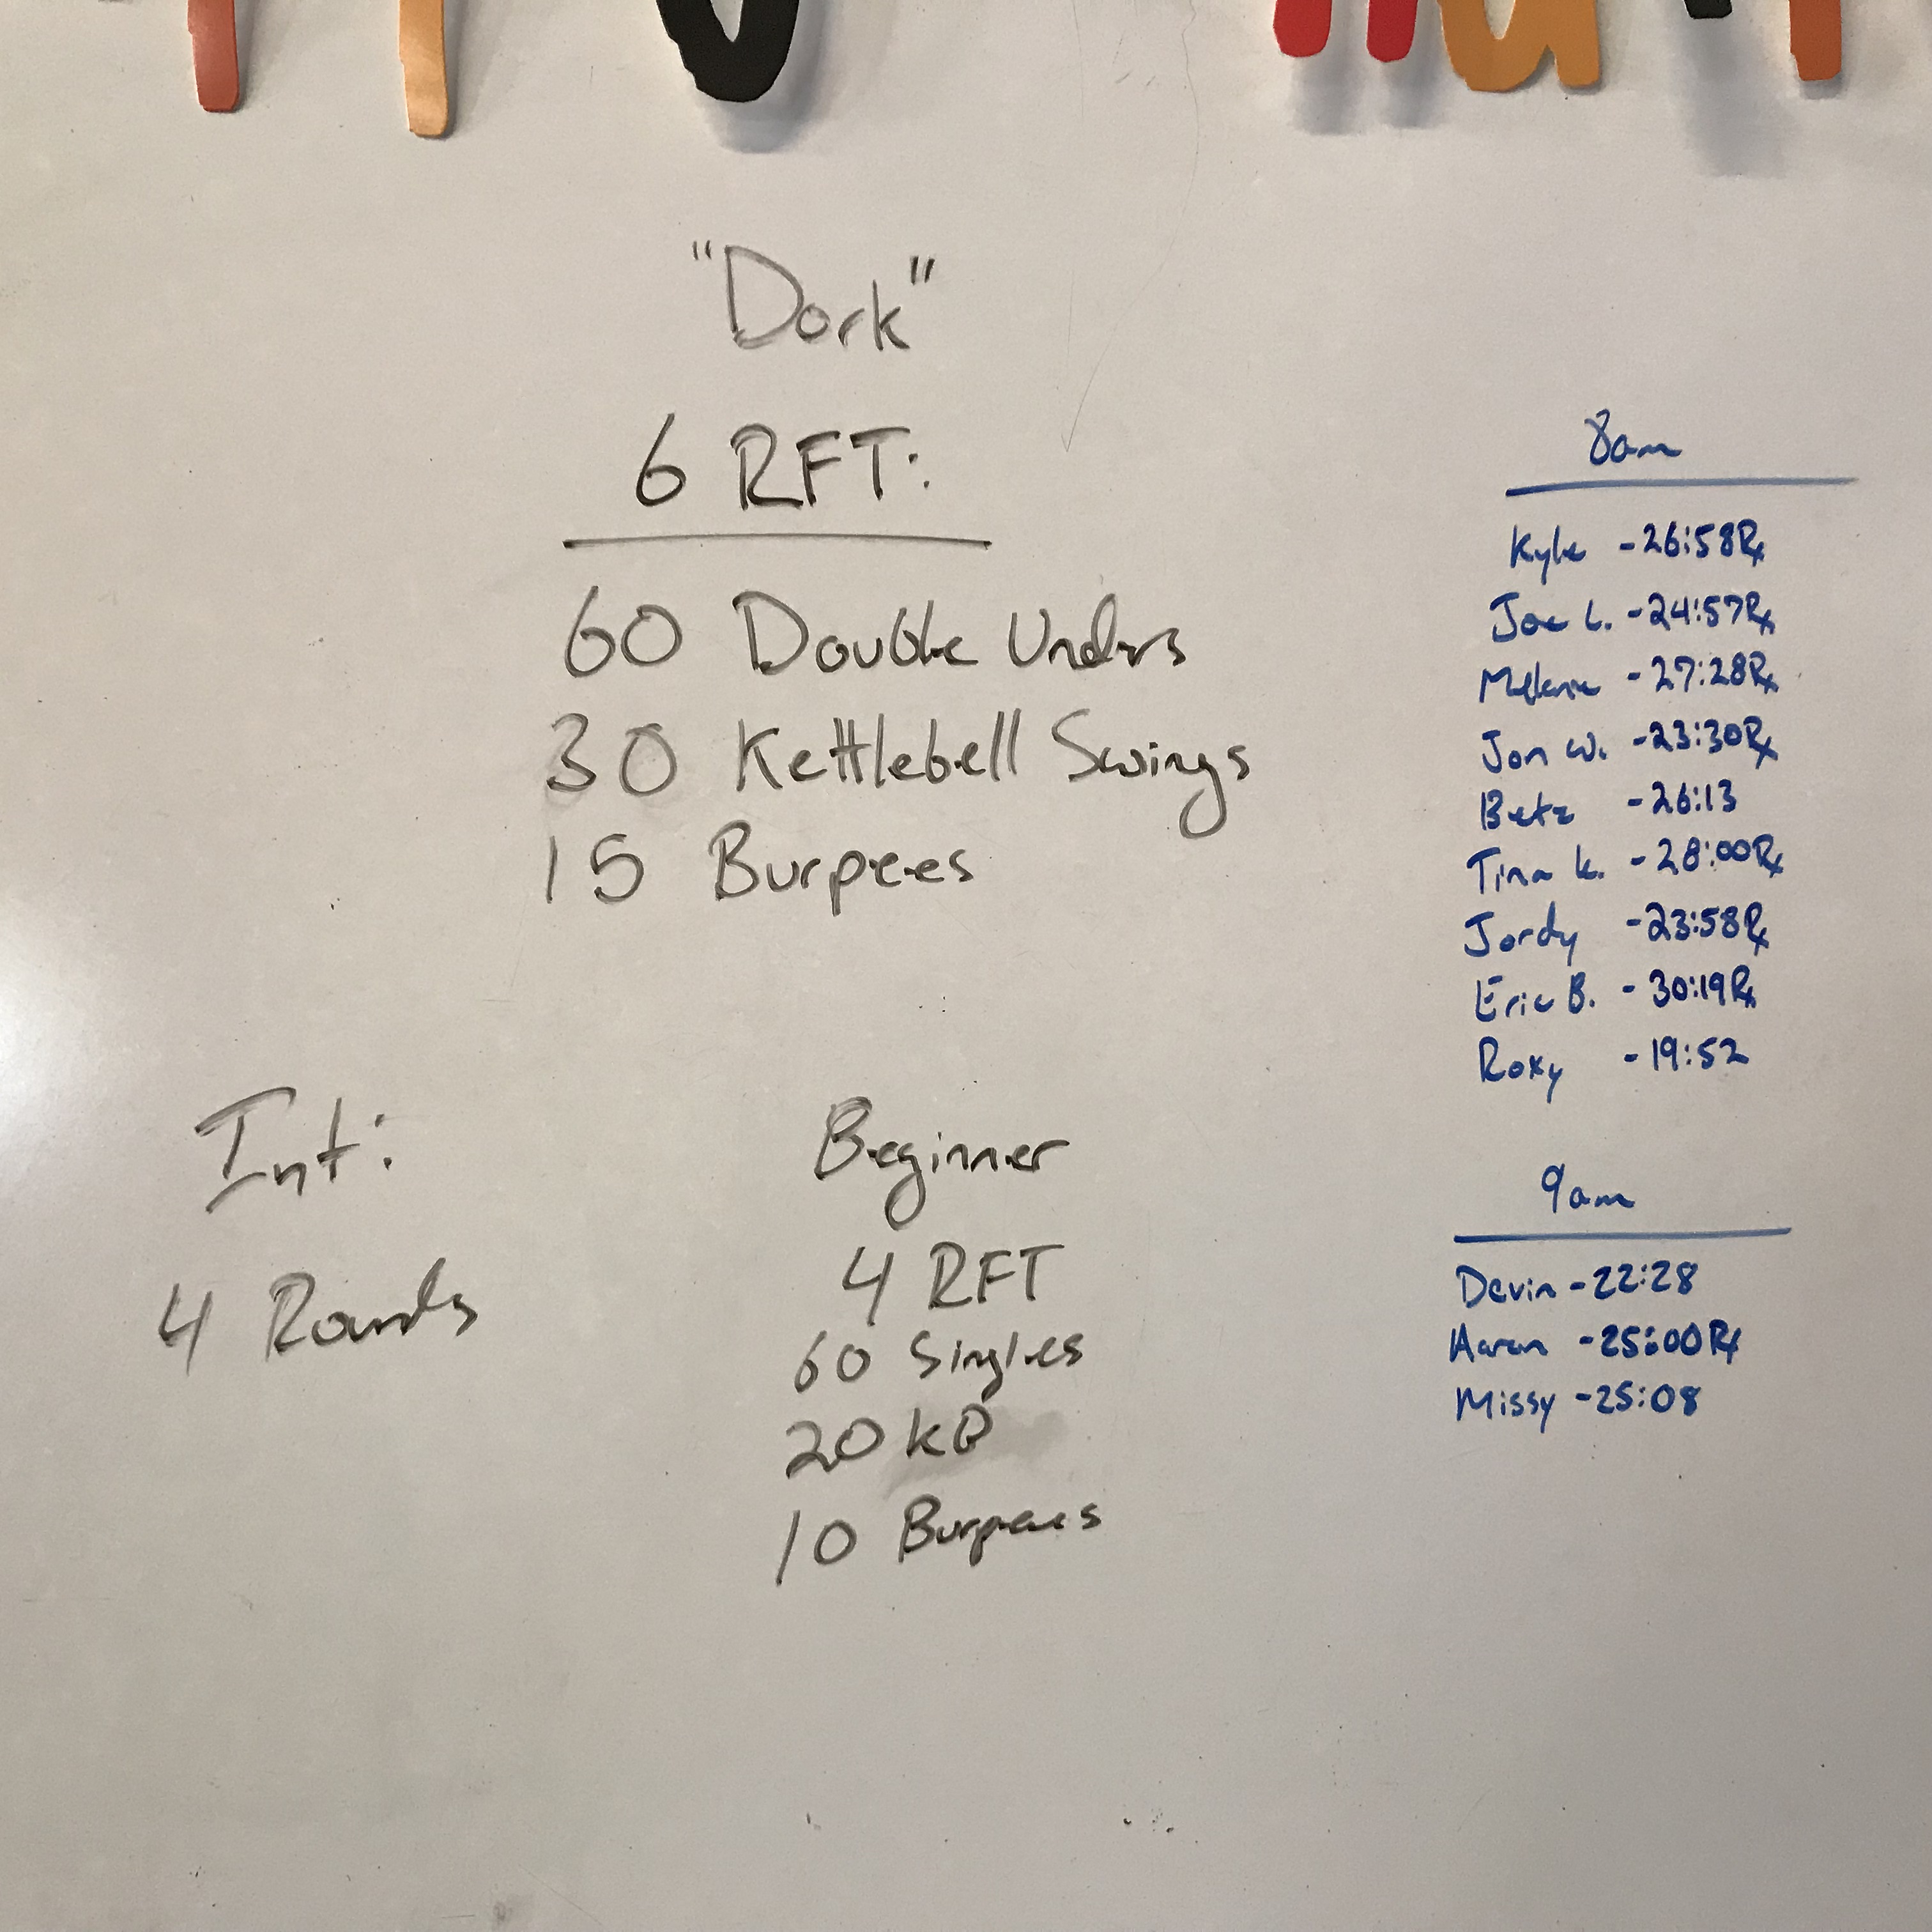 "Dork"
6 RFT:
60 Double Unders
30 Kettlebell Swings
15 Burpees
Int:
4 Rounds
Beginner
4 RFT
60 Singles
20 KB
10 Burpees
8am
Kyle - 26:58 Rx
Joe L. - 24:57 Rx
Melanie - 27:28 Rx
Jon W. - 23:30 Rx
Betz - 26:13
Tina K. - 28:00 Rx
Jordy - 23:58 Rx
Eric B. - 30:19 Rx
Roxy - 19:52
9am
Devin - 22:28
Aaron - 25:00 Rx
Missy - 25:08